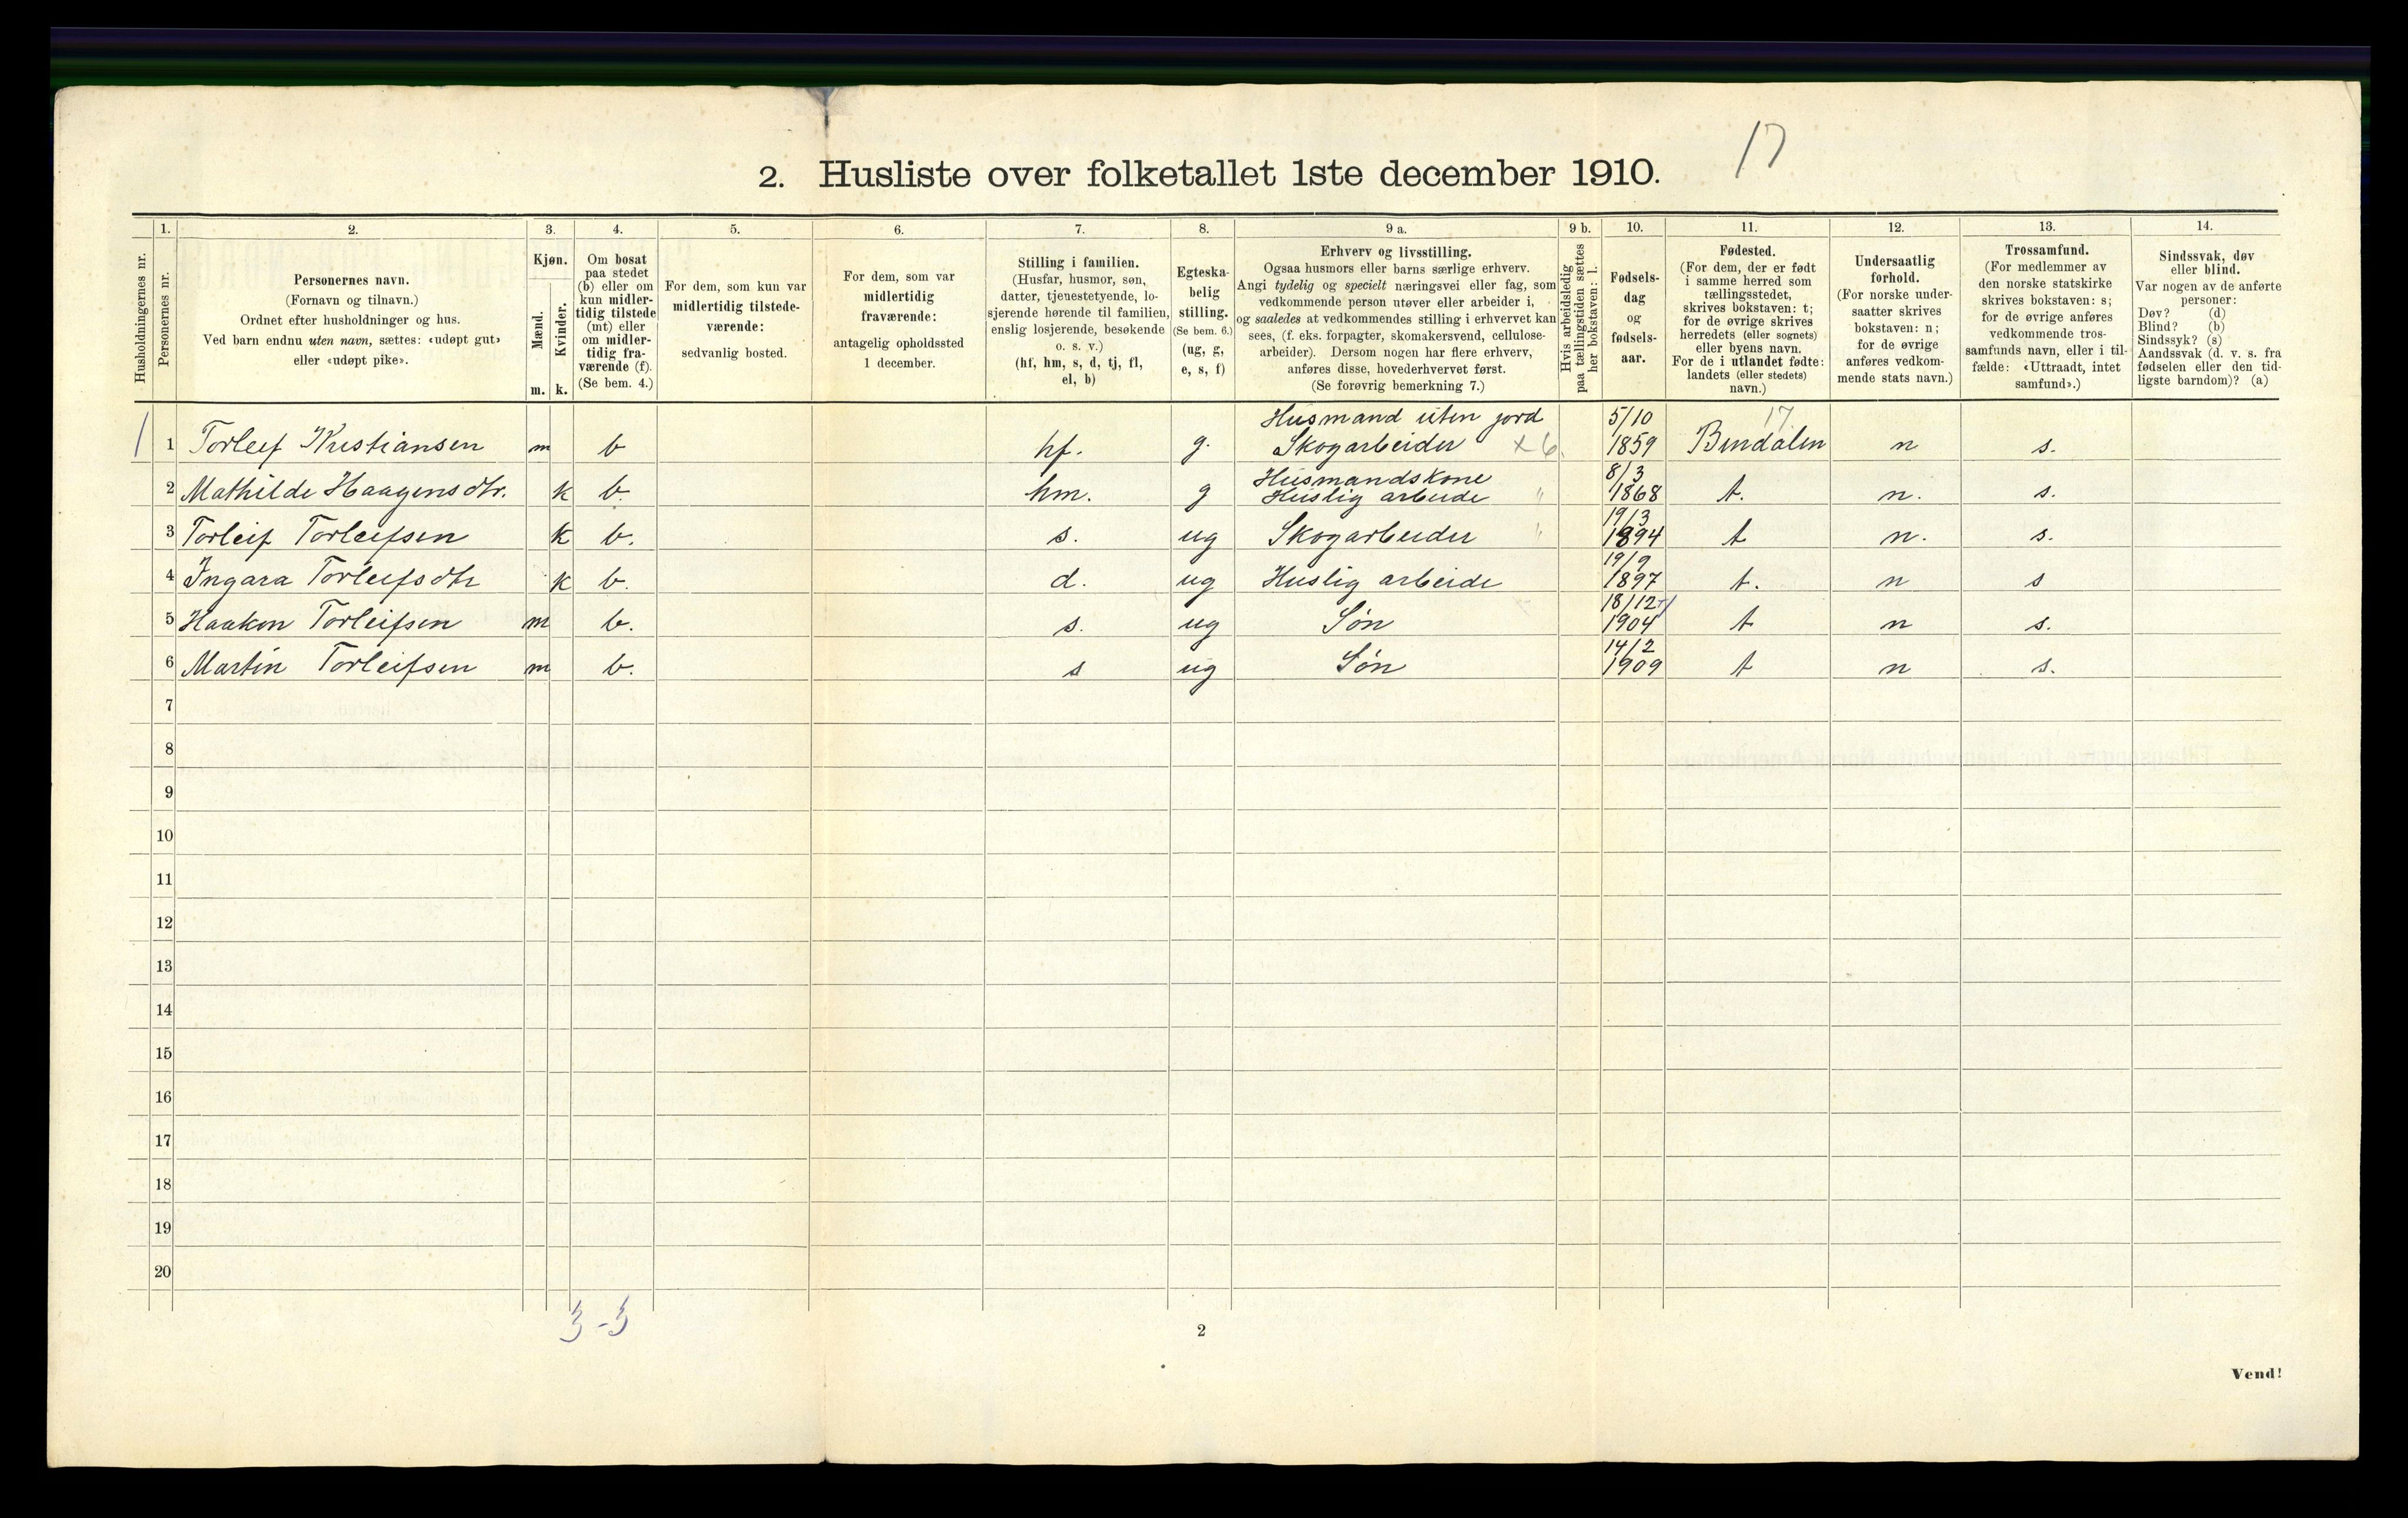 17
2. Husliste over folketallet 1ste december 1910.
Husholdningernes nr.
1. Personernes nr.
2. Personernes navn.
(Fornavn og tilnavn.)
Ordnet efter husholdninger og hus.
Ved barn endnu uten navn, sættes: «udøpt gut»
eller «udøpt pike».
3. Kjøn.
Mænd. m.
Kvinder. k.
4. Om bosat
paa stedet
(b) eller om
kun midler-
tidig tilstede
(mt) eller
om midler-
tidig fra-
værende (f).
(Se bem. 4.)
5. For dem, som kun var
midlertidig tilstede-
værende:
sedvanlig bosted.
6. For dem, som var
midlertidig
fraværende:
antagelig opholdssted
1 december.
7. Stilling i familien.
(Husfar, husmor, søn,
datter, tjenestetyende, lo-
sjerende hørende til familien,
enslig losjerende, besøkende
o. s. v.)
(hf, hm, s, d, tj, fl,
el, b)
8. Egteska-
belig
stilling.
(Se bem. 6.)
(ug, g,
e, s, f)
9 a. Erhverv og livsstilling.
Ogsaa husmors eller barns særlige erhverv.
Angi tydelig og specielt næringsvei eller fag, som
vedkommende person utøver eller arbeider i,
og saaledes at vedkommendes stilling i erhvervet kan
sees, (f. eks. forpagter, skomakersvend, cellulose-
arbeider). Dersom nogen har flere erhverv,
anføres disse, hovederhvervet først.
(Se forøvrig bemerkning 7.)
9 b. Hvis arbeidsledig
paa tællingstiden sættes
her bokstaven: l.
10. Fødsels-
dag
og
fødsels-
aar.
11. Fødested.
(For dem, der er født
i samme herred som
tællingsstedet,
skrives bokstaven: t;
for de øvrige skrives
herredets (eller sognets)
eller byens navn.
For de i utlandet fødte:
landets (eller stedets)
navn.)
12. Undersaatlig
forhold.
(For norske under-
saatter skrives
bokstaven: n;
for de øvrige
anføres vedkom-
mende stats navn.)
13. Trossamfund.
(For medlemmer av
den norske statskirke
skrives bokstaven: s;
for de øvrige anføres
vedkommende tros-
samfunds navn, eller i til-
fælde: «Uttraadt, intet
samfund».)
14. Sindssvak, døv
eller blind.
Var nogen av de anførte
personer:
Døv? (d)
Blind? (b)
Sindssyk? (s)
Aandssvak (d. v. s. fra
fødselen eller den tid-
ligste barndom)? (a)
Husmand uten jord 5/10 17.
1 1 Torleif Kristiansen m b hf. g. Skogarbeider x 6. 1859 Bindalen n s.
Husmandskone 8/3
2 Mathilde Haagensdtr. k b. hm. g Huslig arbeide " 1868 t. n. s.
19/3
3 Torleif Torleifsen k b. s. ug Skogarbeider " 1894 t n. s.
19/9
4 Ingara Torleifsdtr k b. d. ug Huslig arbeide 1897 t. n s
18/12
5 Haakon Torleifsen m b. s. ug Søn 1904 t n s.
14/2
6 Martin Torleifsen m b. s ug Søn 1909 t n s.
7
8
9
10
11
12
13
14
15
16
17
18
19
20
3 - 3
2
Vend!